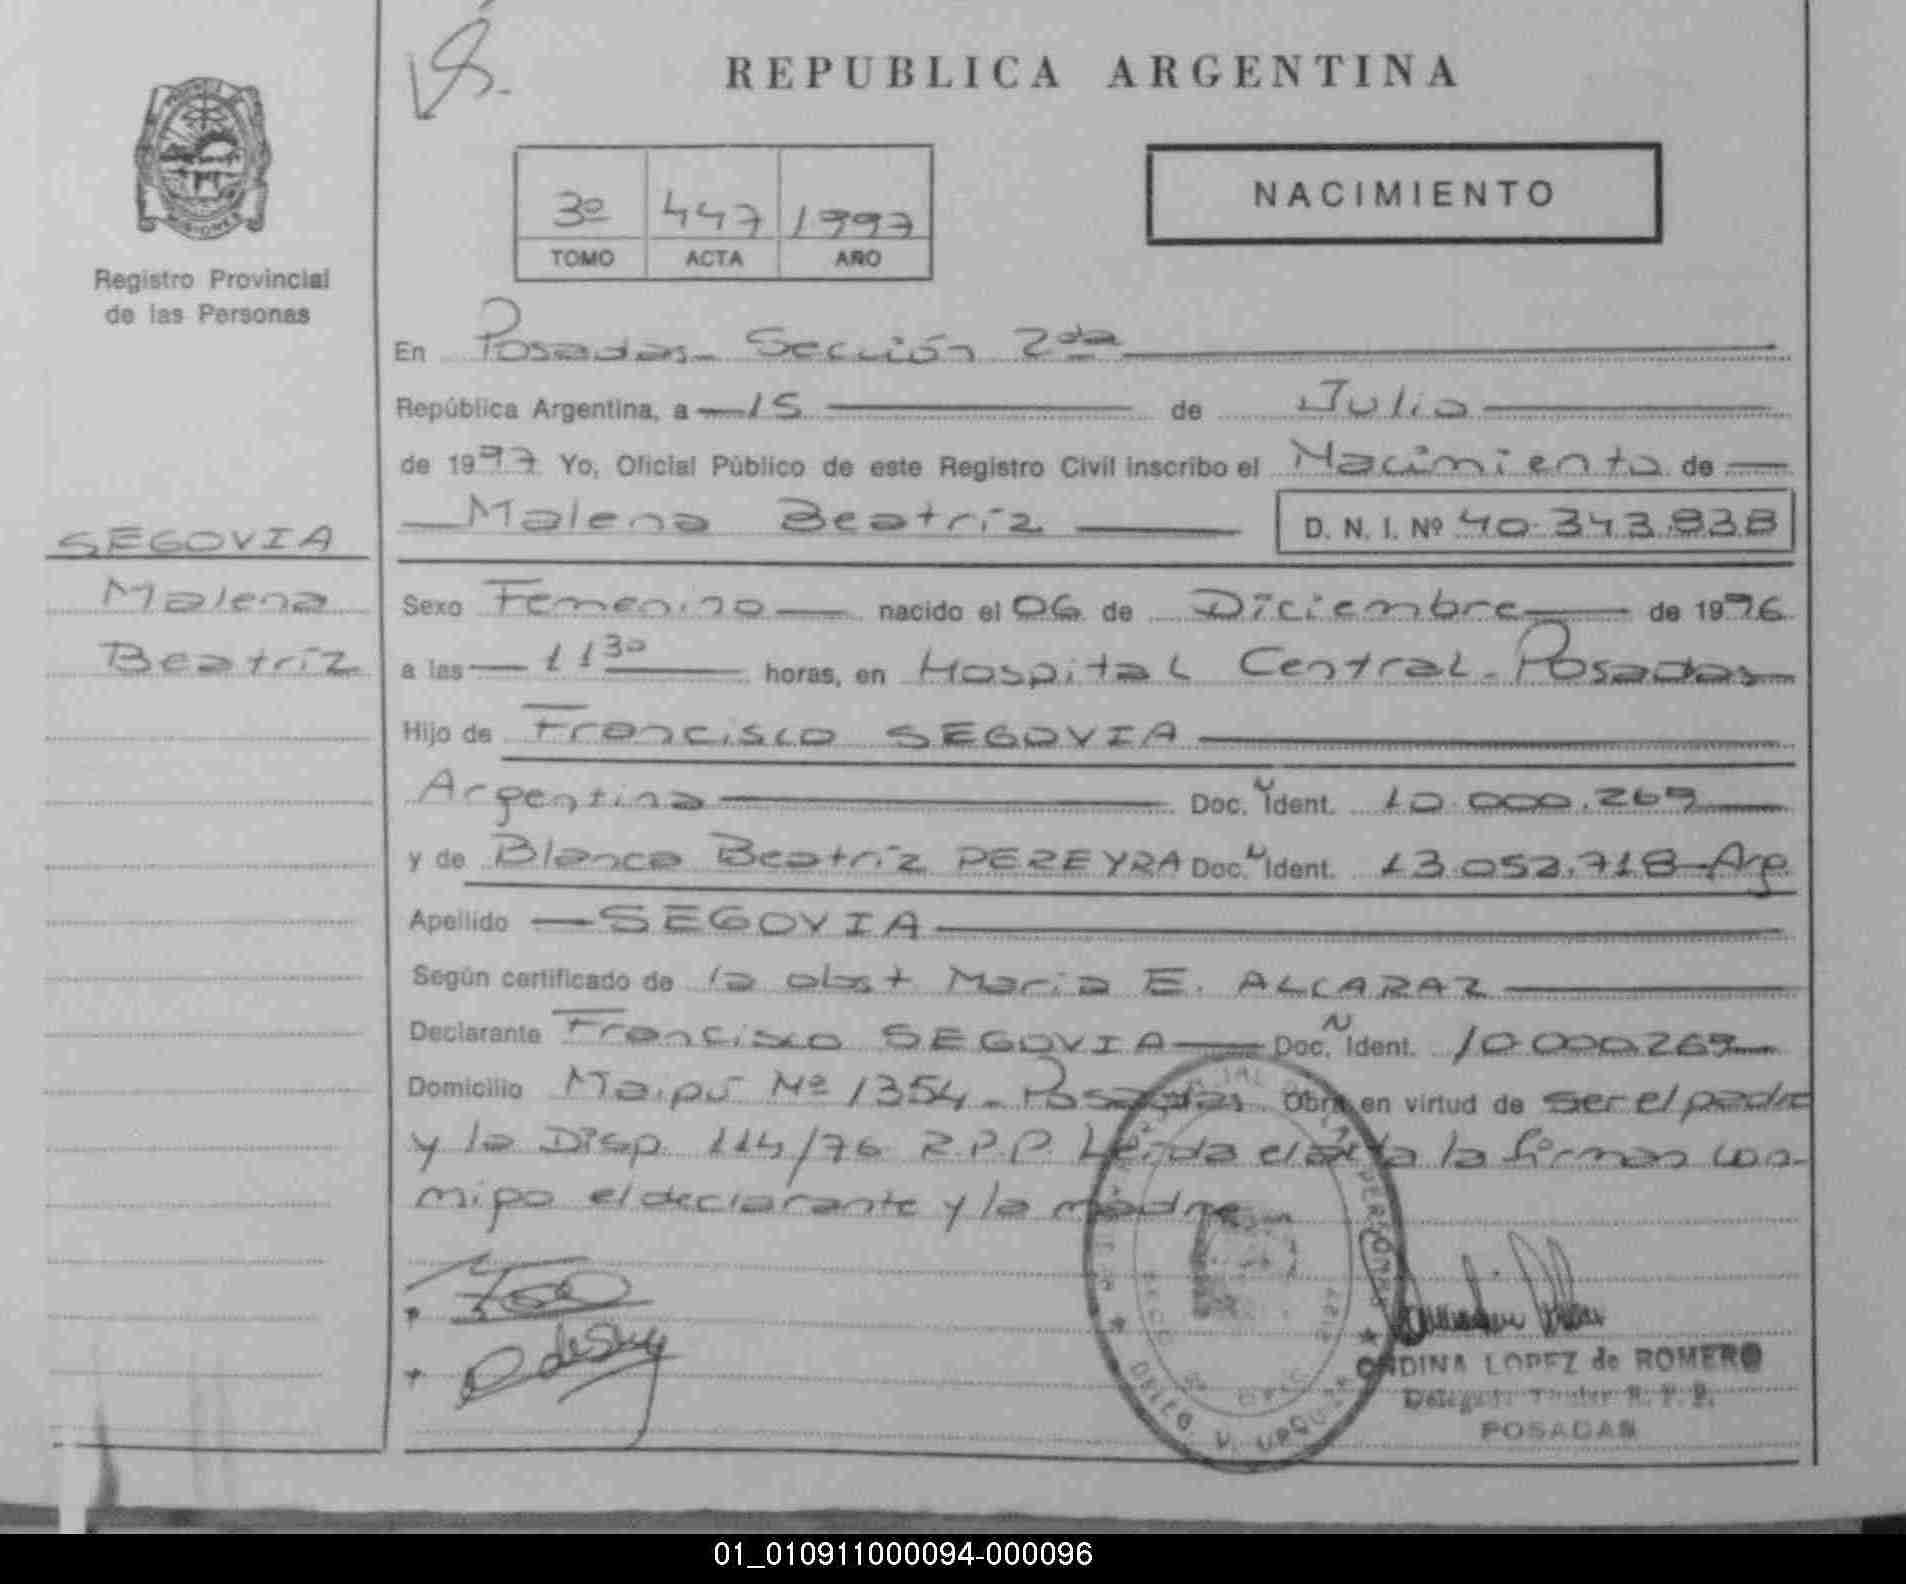 REPUBLICA ARGENTINA
NACIMIENTO
3º 447 1997
TOMO ACTA AÑO
Registro Provincial
de las Personas
En Posadas - Sección 2da
República Argentina, a 15 de Julio
de 1997 Yo, Oficial Público de este Registro Civil inscribo el Nacimiento de
Malena Beatríz D. N. I. Nº 40.343.838
SEGOVIA
Malena
Beatríz
Sexo Femenino nacido el 06 de Diciembre de 1996
a las 11 30 horas, en Hospital Central - Posadas
Hijo de Francisco SEGOVIA
Argentina Doc. N Ident. 10.000.269
y de Blanca Beatríz PEREYRA Doc. N Ident. 13.052.718 - Arg.
Apellido SEGOVIA
Según certificado de la obst María E. ALCARAZ
Declarante Francisco SEGOVIA Doc. N Ident. 10.000.269
Domicilio Maipú Nº 1354 - Posadas Obra en virtud de ser el padre
y la Disp. 114/76 R.P.P. Leída el acta la firman con-
migo el declarante y la madre
ONDINA LOPEZ de ROMERO
Delegada Titular R. P. P.
POSADAS
DELEG. V. URQUIZA
01_010911000094-000096